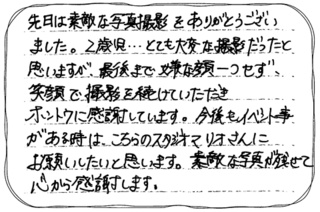 先日は素敵な写真撮影をありがとうござい
ました。2歳児…とても大変な撮影だったと
思いますが、最後まで嫌な顔一つせず、
笑顔で撮影を続けていただき
ホントウに感謝しています。今後もイベント事
がある時は、こちらのスタジオマリオさんに
お願いしたいと思います。素敵な写真が残せて
心から感謝します。